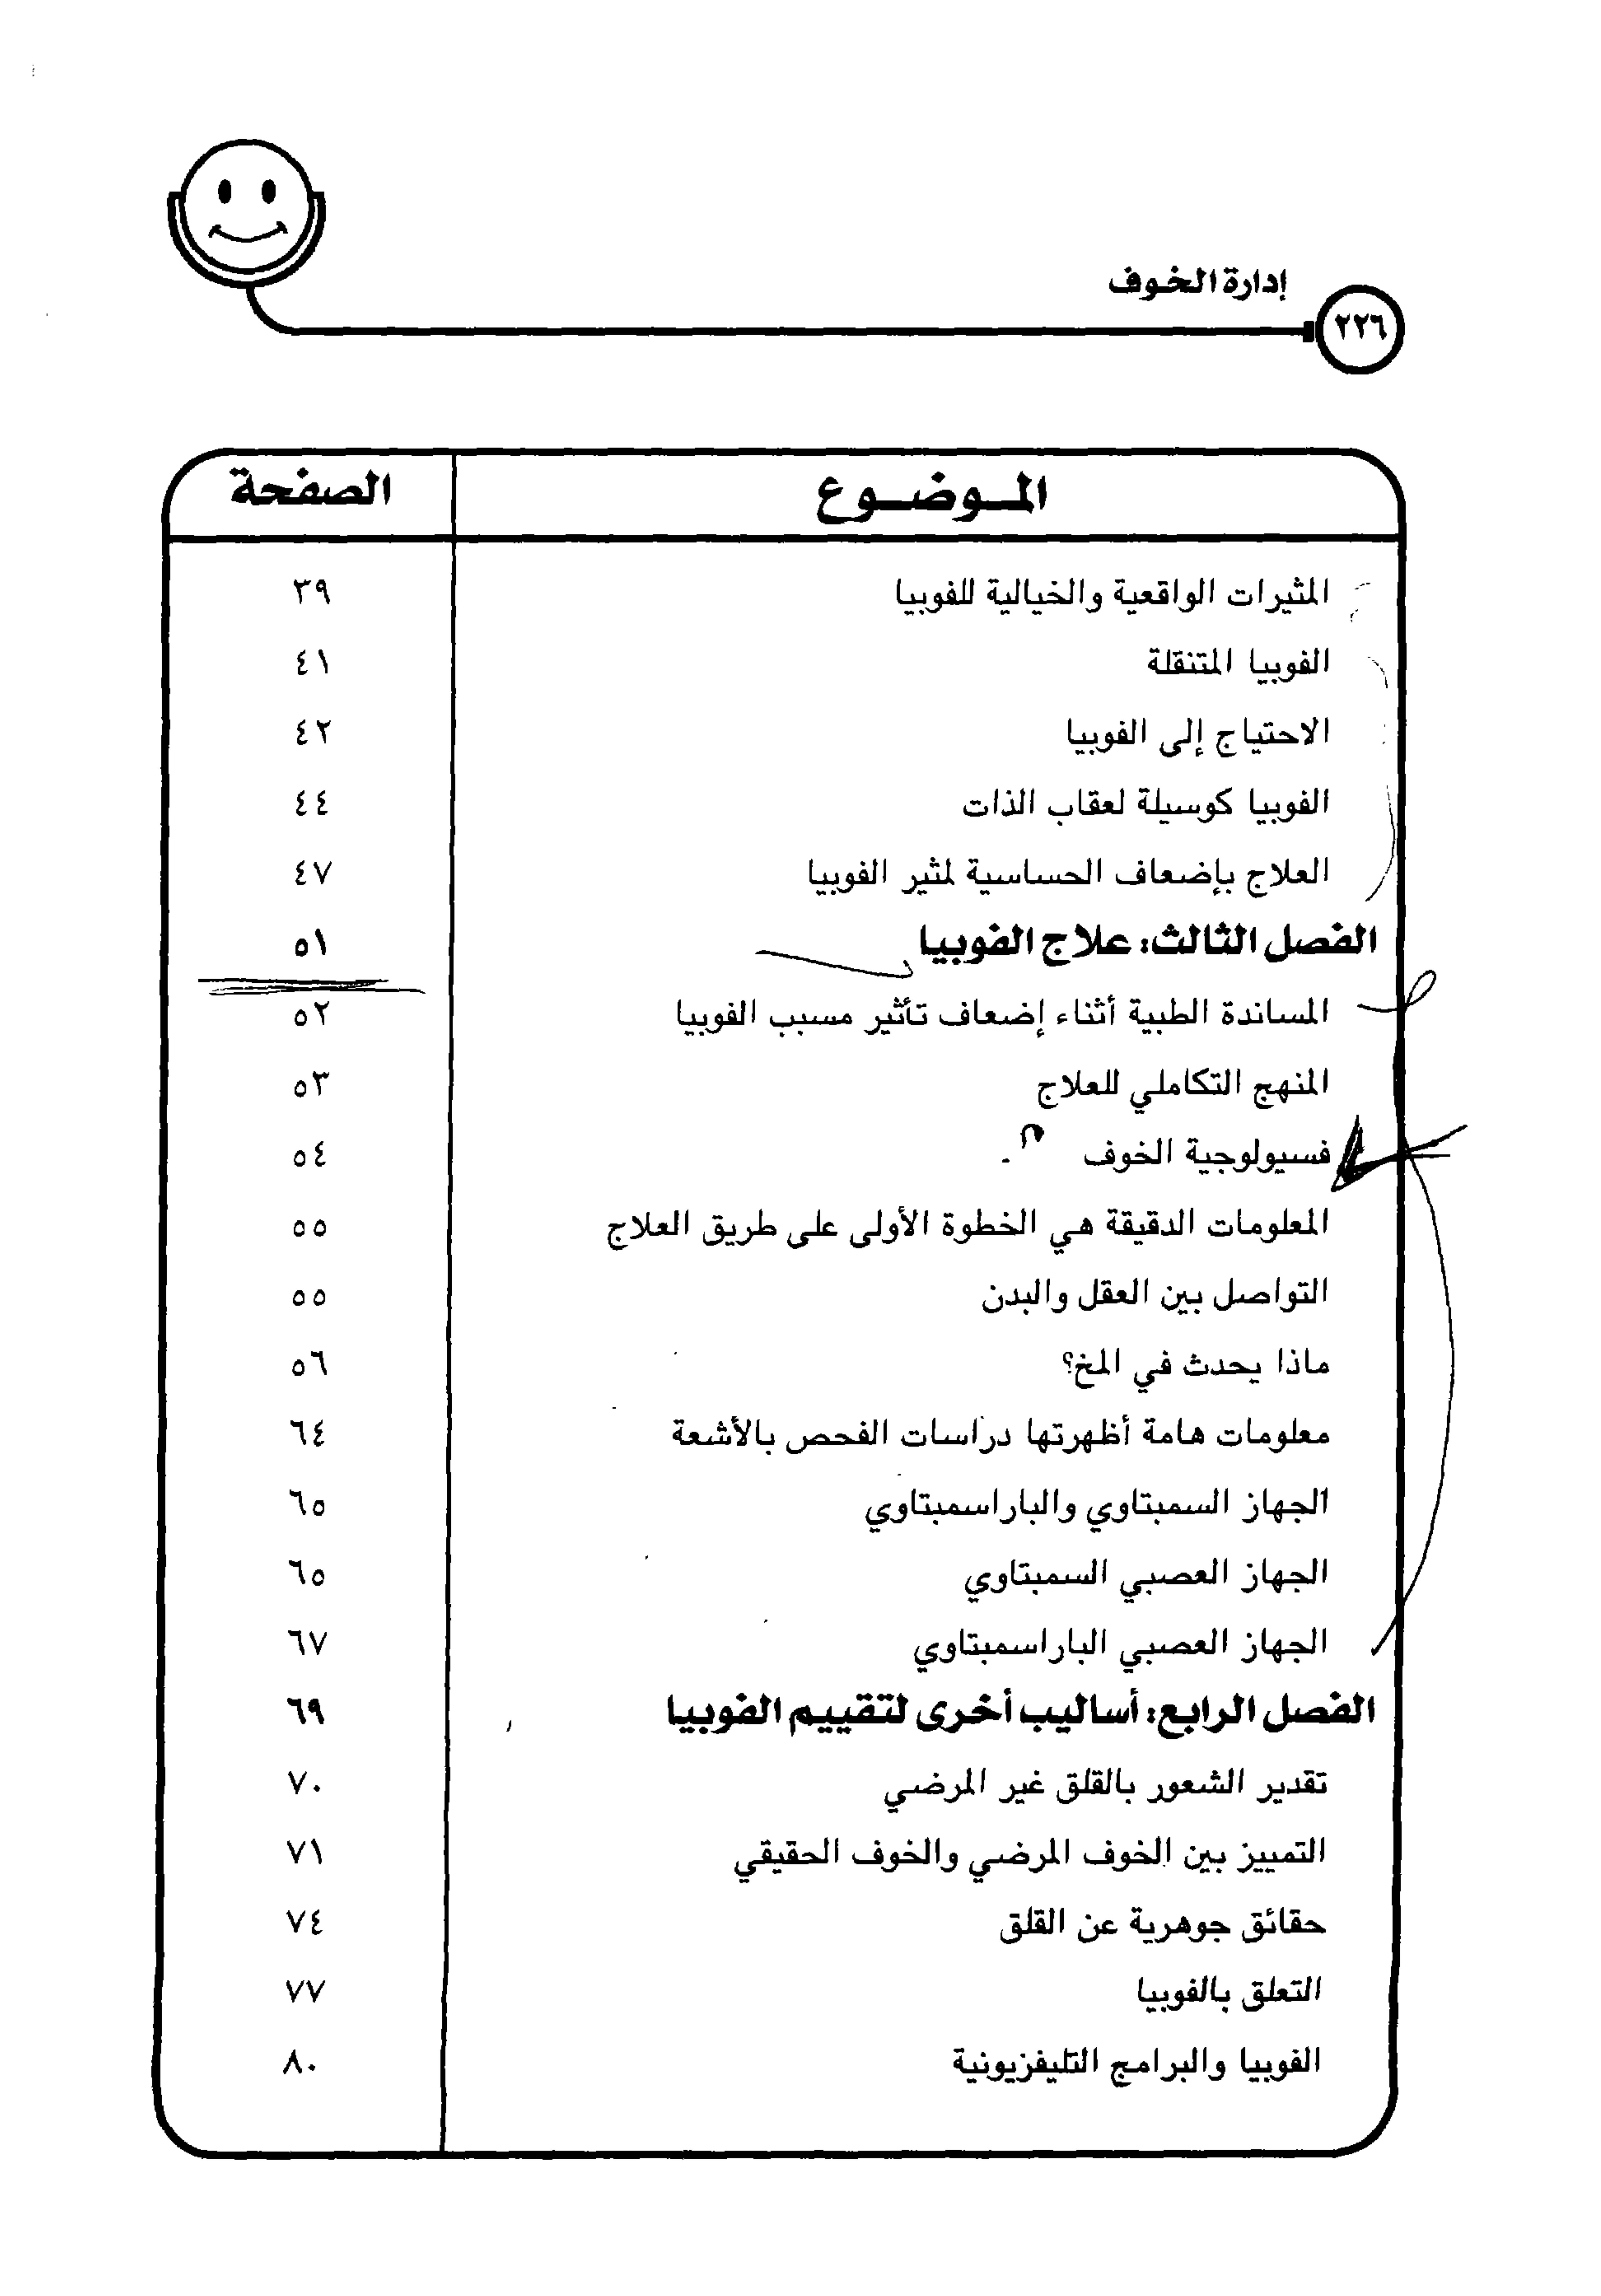 إدارة الخوف
٢٢٦
الموضوع الصفحة
المثيرات الواقعية والخيالية للفوبيا ٣٩
الفوبيا المتنقلة ٤١
الاحتياج إلى الفوبيا ٤٢
الفوبيا كوسيلة لعقاب الذات ٤٤
العلاج بإضعاف الحساسية لمثير الفوبيا ٤٧
الفصل الثالث: علاج الفوبيا ٥١
المساندة الطبية أثناء إضعاف تأثير مسبب الفوبيا ٥٢
المنهج التكاملي للعلاج ٥٣
فسيولوجية الخوف ٥٤
المعلومات الدقيقة هي الخطوة الأولى على طريق العلاج ٥٥
التواصل بين العقل والبدن ٥٥
ماذا يحدث في المخ؟ ٥٦
معلومات هامة أظهرتها دراسات الفحص بالأشعة ٦٤
الجهاز السمبتاوي والباراسمبتاوي ٦٥
الجهاز العصبي السمبتاوي ٦٥
الجهاز العصبي الباراسمبتاوي ٦٧
الفصل الرابع: أساليب أخرى لتقييم الفوبيا ٦٩
تقدير الشعور بالقلق غير المرضي ٧٠
التمييز بين الخوف المرضي والخوف الحقيقي ٧١
حقائق جوهرية عن القلق ٧٤
التعلق بالفوبيا ٧٧
الفوبيا والبرامج التليفزيونية ٨٠